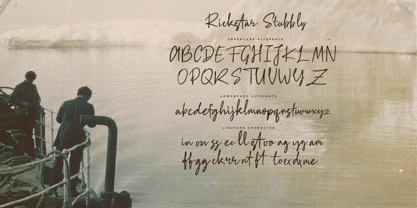 Rickstar Stubbly
UPPERCASE ALTERNATE
ABCDEFGHIJKLMN
OPQRSTUVWYZ
LOWERCASE ALTERNATE
abcdefghijklmnopqrstuvwxyz
LIGATURE CHARACTER
in on ss ee ll st oo ag yg am
ff gg ck rr nt ft